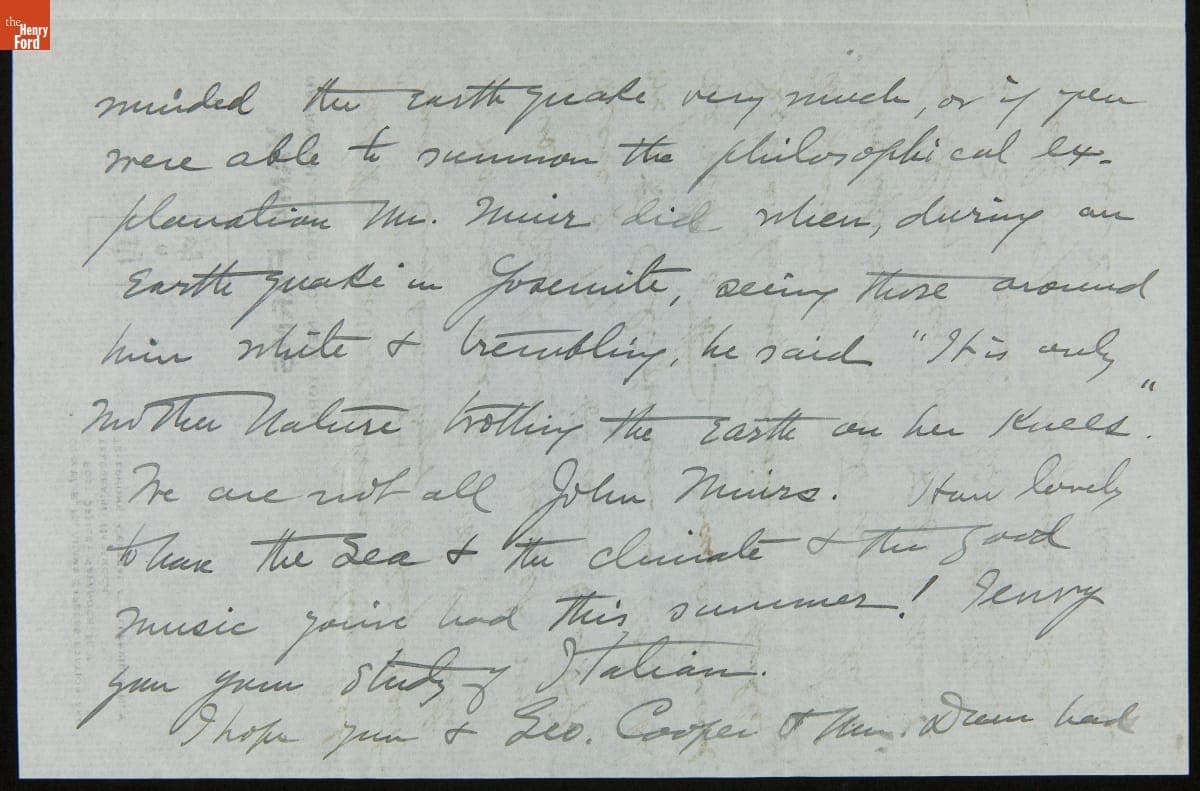 the
Henry
Ford
minded the earthquake very much, or if you
were able to summon the philosophical ex-
planation Mr. Muir did when, during an
Earthquake in Yosemite, seeing those around
him white & trembling, he said "It is only
Mother Nature trotting the Earth on her knees".
We are not all John Muirs. How lovely
to have the sea & the climate & the good
music you've had this summer! I envy
you your study of Italian.
I hope you & Geo. Cooper & had